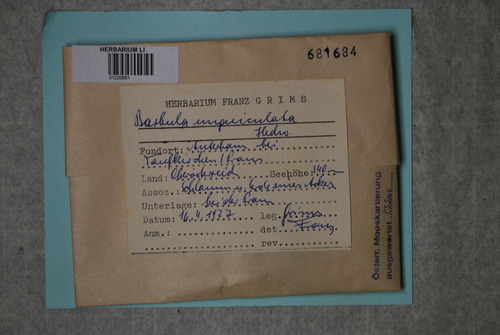 HERBARIUM LI
01220691
681684
HERBARIUM FRANZ GRIMS
Barbula unguiculata
Hedw
Fundort: bei
Taufkirchen/Pram
Land: Oberösterreich Seehöhe: 340
Assoz.:
Unterlage: bei der Pram
Datum: 16.4.1977 leg. Grims
Anm.: det. Franz
rev.
Österr. Mooskartierung
ausgewertet